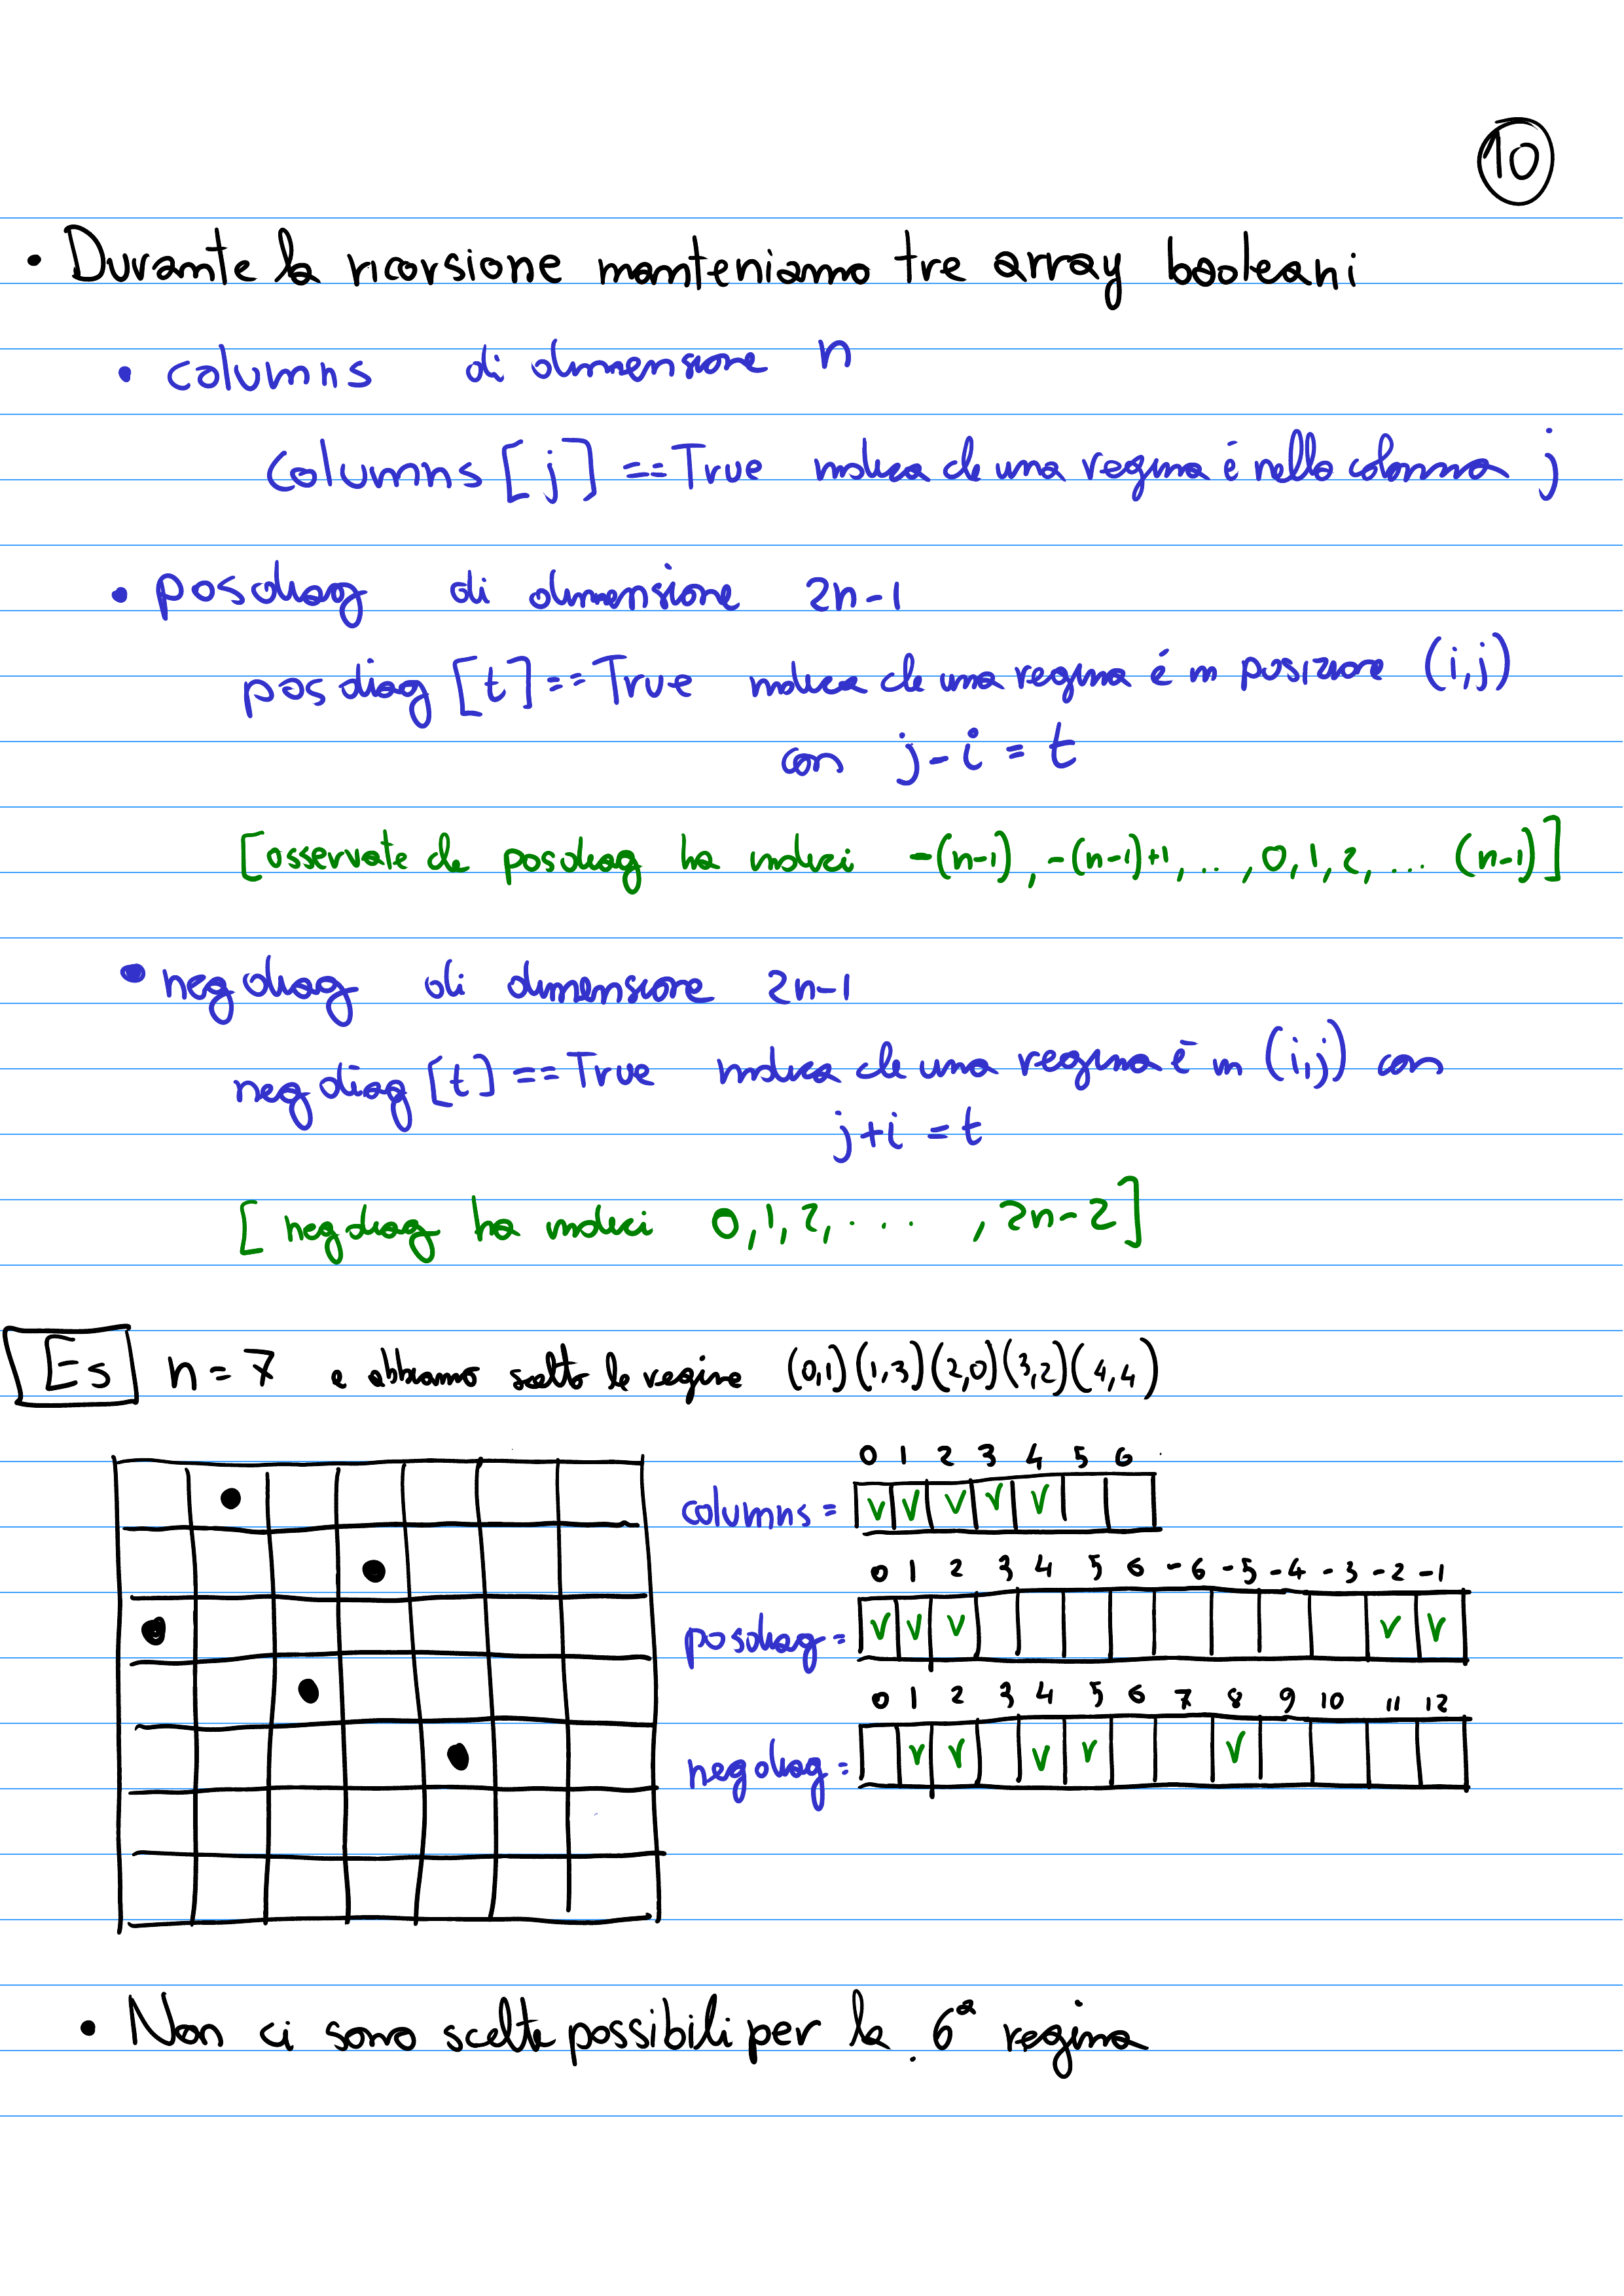 10
• Durante la ricorsione manteniamo tre array booleani
• columns di dimensione n
columns [j] == True indica che una regina è nella colonna j
• posdiag di dimensione 2n-1
posdiag [t] == True indica che una regina è in posizione (i,j)
con j-i = t
[osservate che posdiag ha indici -(n-1), -(n-1)+1, ..., 0, 1, 2, ... (n-1)]
• negdiag di dimensione 2n-1
negdiag [t] == True indica che una regina è in (i,j) con
j+i = t
[negdiag ha indici 0, 1, 2, ...., 2n-2]
Es n = 7 e abbiamo scelto le regine (0,1)(1,3)(2,0)(3,2)(4,4)
0 1 2 3 4 5 6
columns = V V V V V
0 1 2 3 4 5 6 -6 -5 -4 -3 -2 -1
posdiag = V V V V V
0 1 2 3 4 5 6 7 8 9 10 11 12
negdiag = V V V V V
• Non ci sono scelte possibili per la 6ª regina